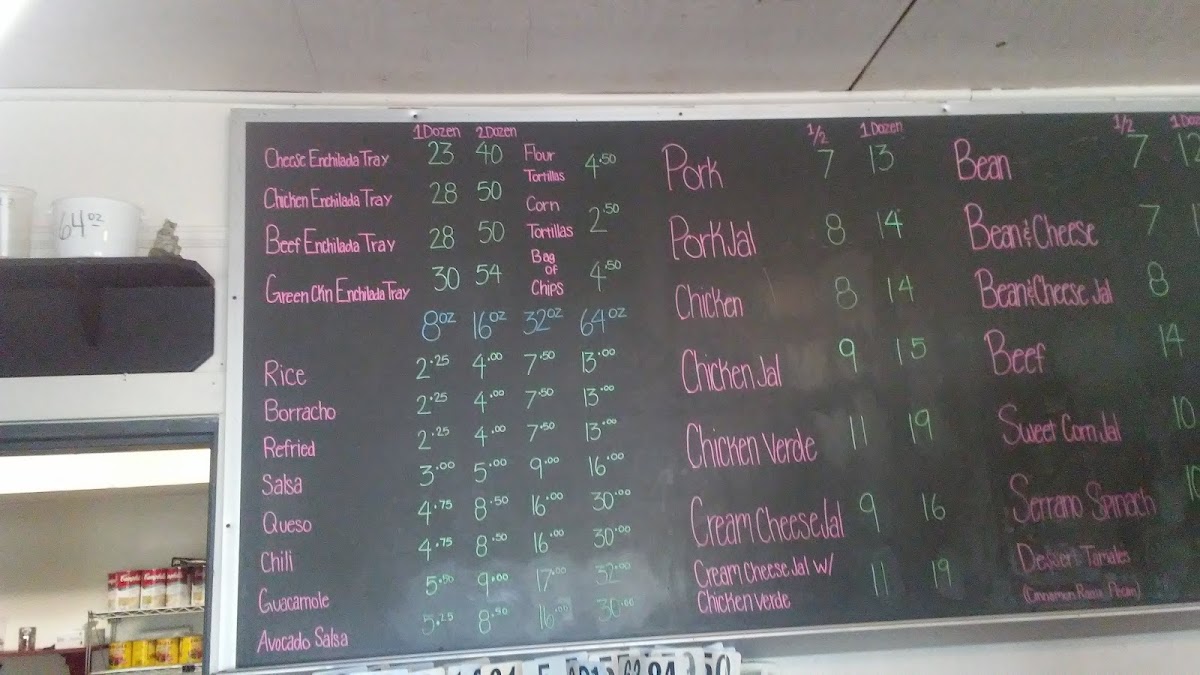 1 Dozen 2 Dozen
Cheese Enchilada Tray 23 40
Chicken Enchilada Tray 28 50
Beef Enchilada Tray 28 50
Green Ckn Enchilada Tray 30 54
Flour
Tortillas 4.50
Corn
Tortillas 2.50
Bag
of
Chips 4.50
8oz 16oz 32oz 64oz
Rice 2.25 4.00 7.50 13.00
Borracho 2.25 4.00 7.50 13.00
Refried 2.25 4.00 7.50 13.00
Salsa 3.00 5.00 9.00 16.00
Queso 4.75 8.50 16.00 30.00
Chili 4.75 8.50 16.00 30.00
Guacamole 5.50 9.00 17.00 32.00
Avocado Salsa 5.25 8.50 16.00 30.00
1/2 1 Dozen
Pork 7 13
Pork Jal 8 14
Chicken 8 14
Chicken Jal 9 15
Chicken Verde 11 19
Cream Cheese Jal 9 16
Cream Cheese Jal W/
Chicken Verde 11 19
1/2
Bean 7
Bean & Cheese 7
Bean & Cheese Jal 8
Beef 14
Sweet Corn Jal 10
Serrano Spinach
Dessert Tamales
64oz
Campbell's